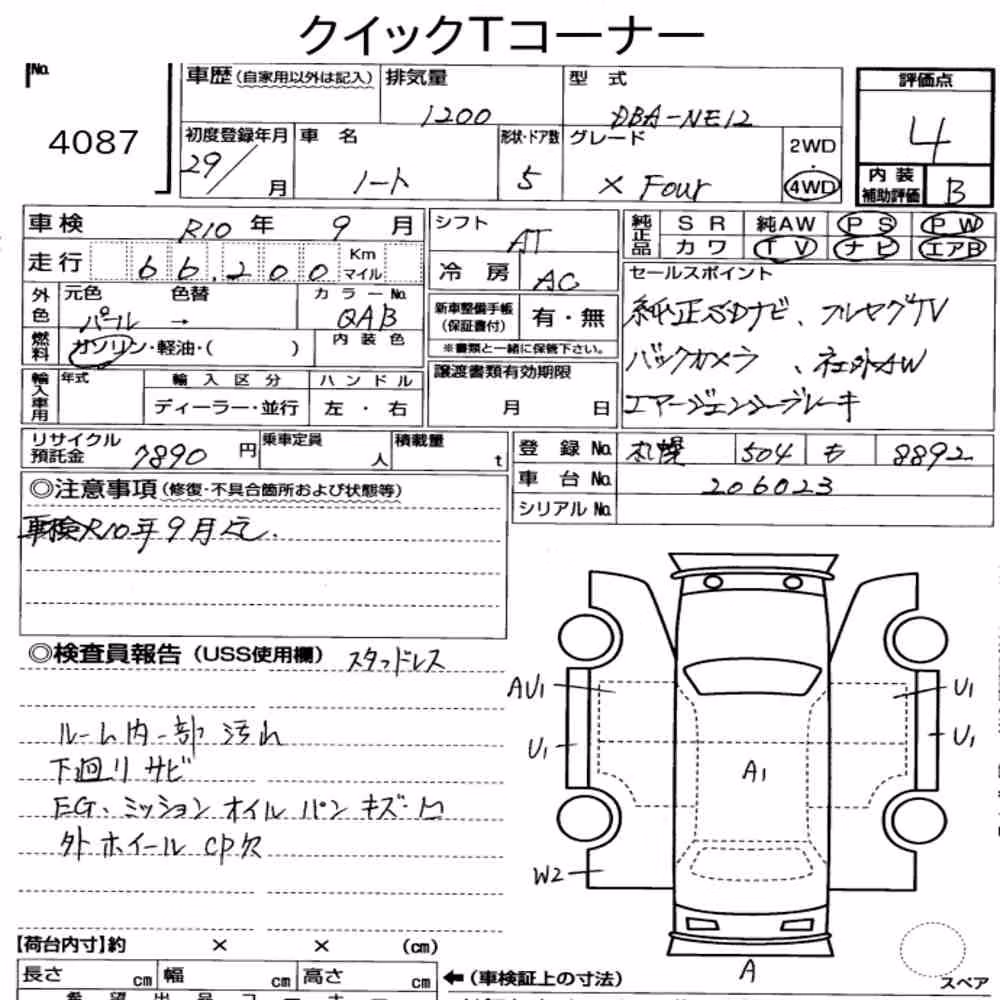 クイックTコーナー
No.
4087
車歴(自家用以外は記入) 排気量 1200 型式 DBA-NE12
評価点 4
初度登録年月 29/ 月 車名 ノート 形状・ドア数 5 グレード X Four 2WD・4WD
内装補助評価 B
車検 R10年 9月
走行 66,200 Km マイル
シフト AT
冷房 AC
純正品 SR 純AW PS PW
カワ TV ナビ エアB
外色 元色 パール → 色替 カラーNo. QAB
燃料 ガソリン・軽油・( ) 内装色
新車整備手帳(保証書付) 有・無
※書類と一緒に保管下さい。
セールスポイント
純正SDナビ、フルセグTV
バックカメラ、社外AW
エマージェンシーブレーキ
輸入車用 年式 輸入区分 ハンドル
ディーラー・並行 左・右
譲渡書類有効期限
月 日
リサイクル預託金 7890円 乗車定員 人 積載量 t
登録No. 札幌 504 も 8892
車台No. 206023
シリアルNo.
◎注意事項(修復・不具合箇所および状態等)
車検R10年9月迄.
◎検査員報告(USS使用欄) スタッドレス
ルーム内一部汚れ
下廻りサビ
EG、ミッションオイルパンキズ・凹
外ホイールCP欠
AU1
U1
U1
U1
A1
W2
A
スペア
【荷台内寸】約 × × (cm)
長さ cm 幅 cm 高さ cm
←(車検証上の寸法)
希望出品コーナー